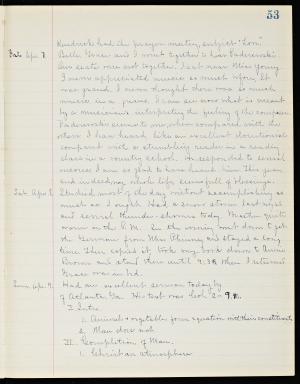 53
Kendrick led the prayer meeting, subject "Love"
Sat. Apr. 7. Belle Greer and I went together to hear Paderewski.
Our seats were not together. I sat near Miss Young.
I never appreciated music so much before. It
was grand. I never thought there was so much
music in a piano. I can see now what is meant
by a musician's interpreting the feeling of the composer.
Paderewski seems to me when compared with the
others I have heard like an excellent elocutionist
compared with a stumbling reader in a reading
class in a country school. He responded to several
encores. I am so glad to have heard him this year
and indeed my whole life seems full of blessings.
Sat. Apr. 8. Studied most of the day without accomplishing as
much as I ought. Had a snow storm last night
and several thunder-showers today. Weather quite
warm in the P.M. In the evening went down to get
the German from Miss and stayed a long
time. Then copied it, took my book down to Annie
Brown and staid there until 9:30 when I returned
Grace was in bed.
Sun. Apr. 9. Had an excellent sermon today by
of Atlanta Ga. His text was Col. 2-9,10.
I. Intro.
1. Animal & vegetable form equation with their constituents
2. Man does not.
II. Completion of Man.
1. Christian atmosphere